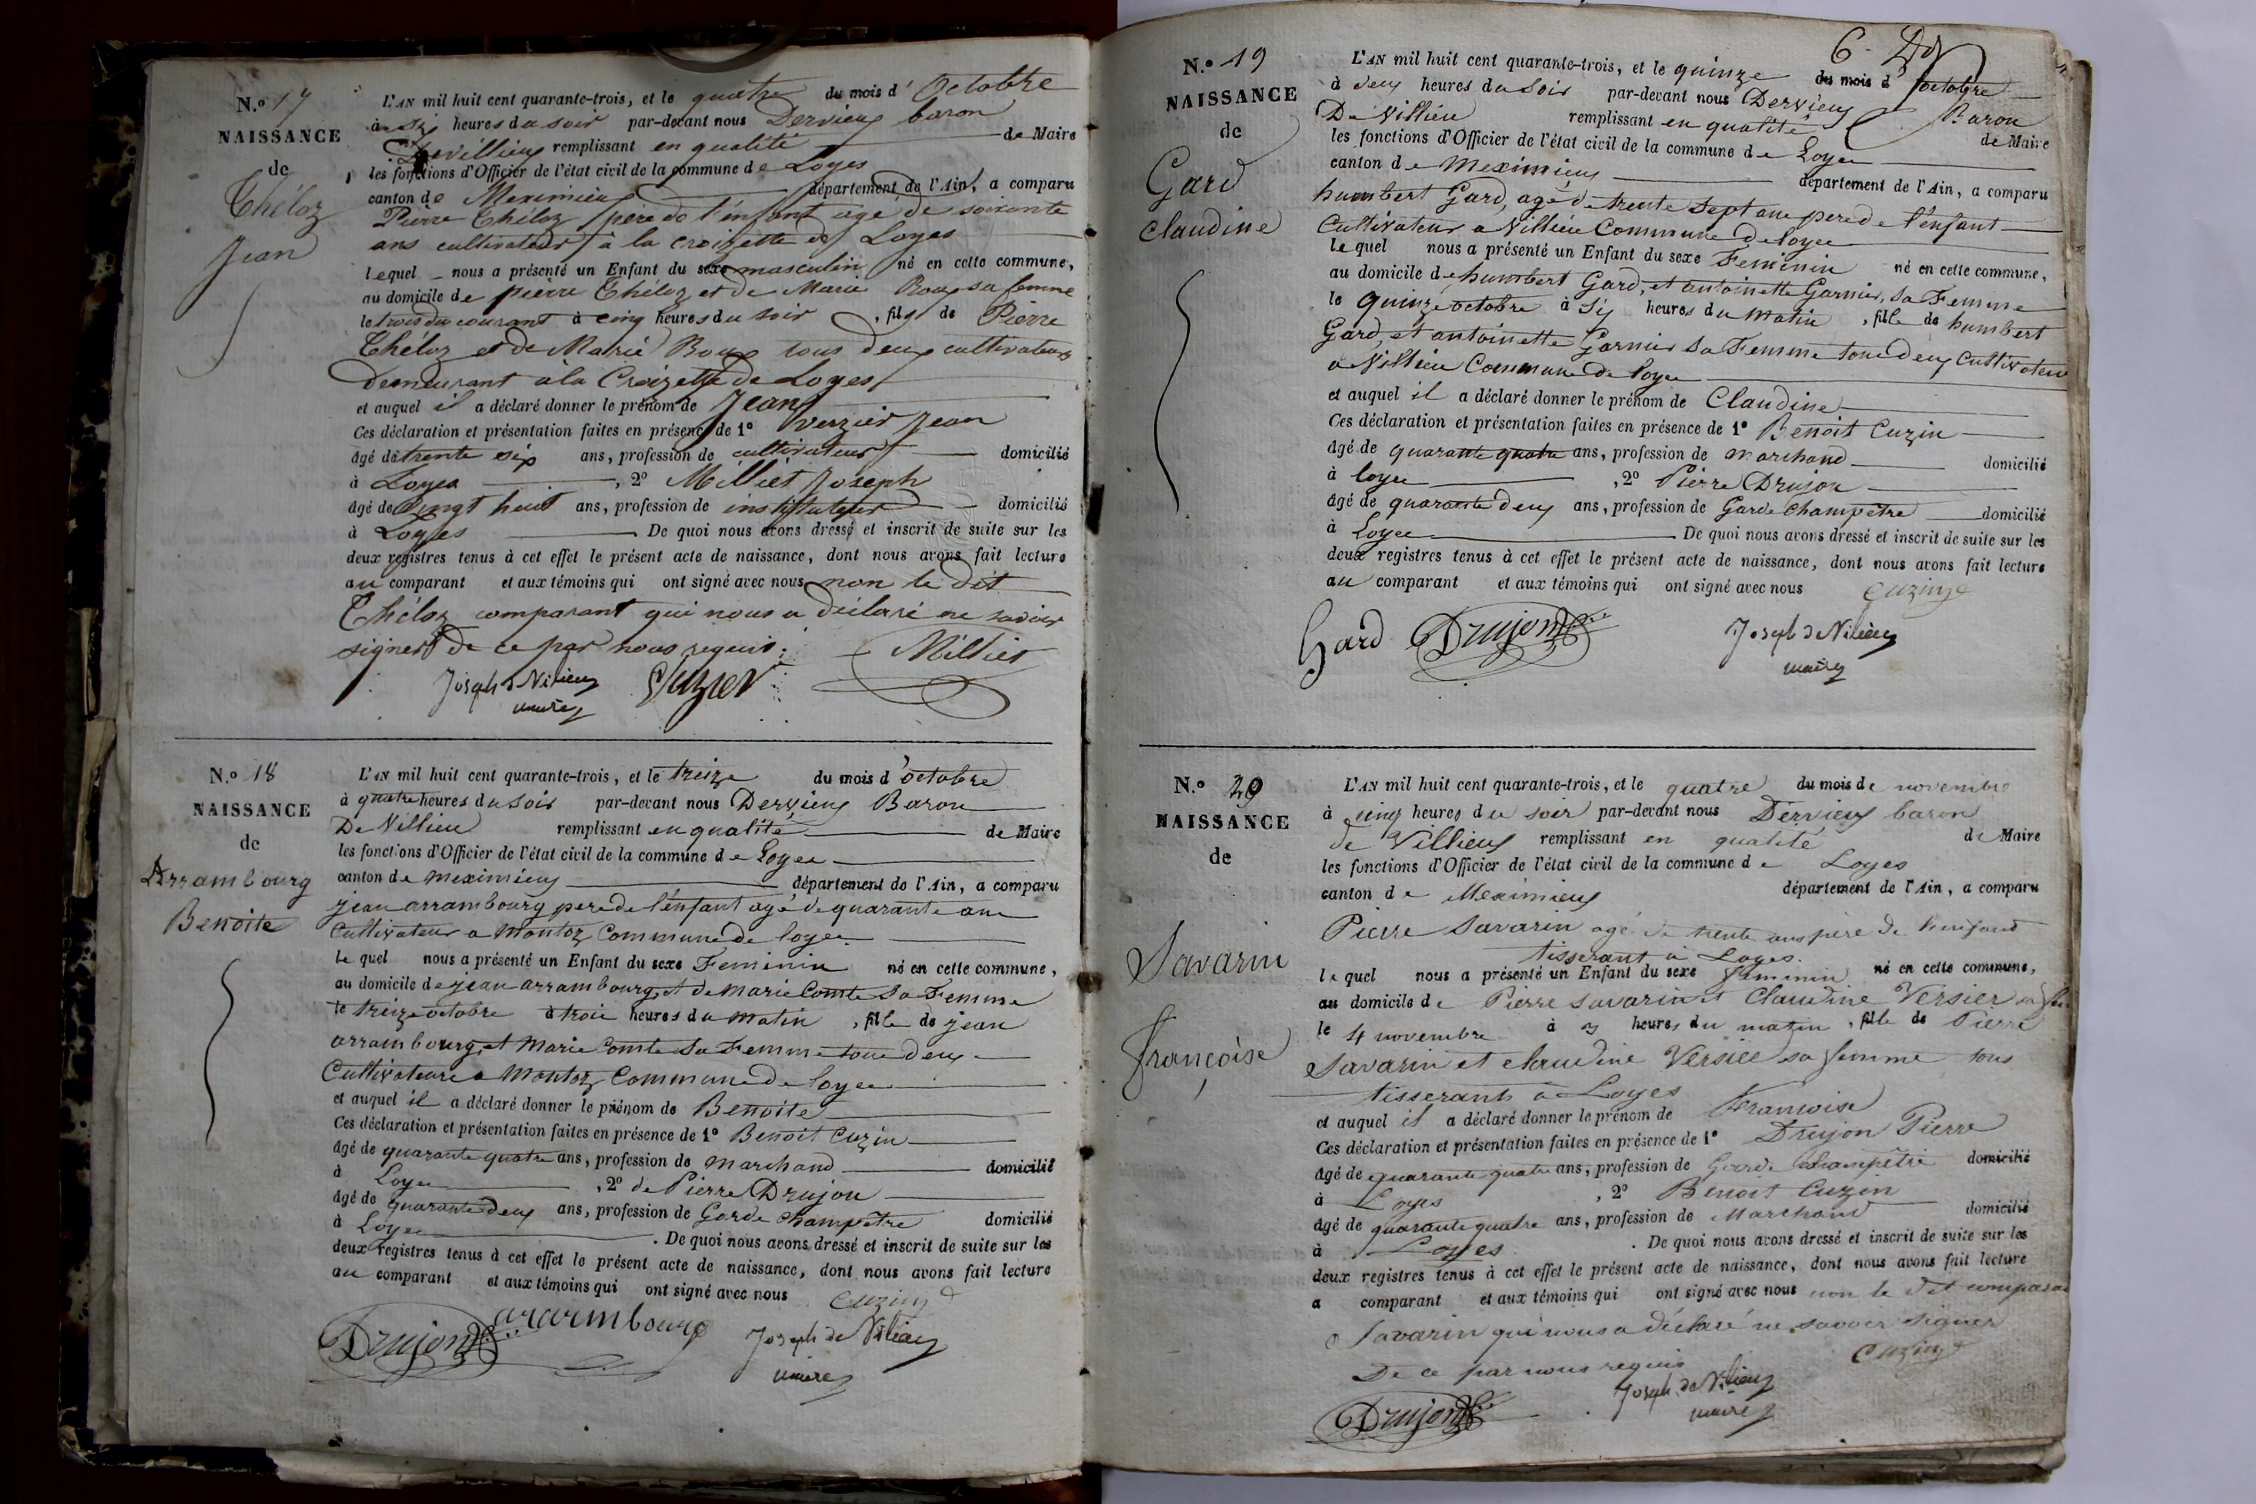 N.º 17
NAISSANCE
de
Théloz
Jean
L'AN mil huit cent quarante-trois, et le quatre du mois d'Octobre
à six heures du soir par-devant nous Dervieux baron
Devillieux remplissant en qualité de Maire
les fonctions d'Officier de l'état civil de la commune de Loyes
canton de Meximieux département de l'Ain, a comparu
Pierre Théloz père de l'enfant agé de soixante
ans cultivateur à la croizette de Loyes
lequel nous a présenté un Enfant du sexe masculin né en cette commune,
au domicile de pierre Théloz et de Marie Roux sa femme
le trois du courant à cinq heures du soir, fils de Pierre
Théloz et de Marie Roux tous deux cultivateurs
demeurant à la Croizette de Loyes
et auquel il a déclaré donner le prénom de Jean
Ces déclaration et présentation faites en présence de 1º Verzier Jean
âgé de trente six ans, profession de cultivateur domicilié
à Loyes, 2º Milliet Joseph
âgé de vingt huit ans, profession de instituteur domicilié
à Loyes De quoi nous avons dressé et inscrit de suite sur les
deux registres tenus à cet effet le présent acte de naissance, dont nous avons fait lecture
au comparant et aux témoins qui ont signé avec nous non le dit
Théloz comparant qui nous a déclaré ne savoir
signer de ce par nous requis.
Milliet
Joseph de Villieux
maire
N.º 18
NAISSANCE
de
Arrambourg
Benoite
L'AN mil huit cent quarante-trois, et le treize du mois d'octobre
à quatre heures du soir par-devant nous Dervieux Baron
De Villieu remplissant en qualité de Maire
les fonctions d'Officier de l'état civil de la commune de Loyes
canton de meximieux département de l'Ain, a comparu
jean arrambourg pere de l'enfant agé de quarante ans
Cultivateur a Montoz Commune de loyes
le quel nous a présenté un Enfant du sexe Feminin né en cette commune,
au domicile de jean arrambourg, et de marie Comte Sa Femme
le treize octobre à trois heures du matin, fille de jean
arrambourg, et Marie Comte Sa Femme tous deux
Cultivateurs a Montoz Commune de loyes
et auquel il a déclaré donner le prénom de Benoite
Ces déclaration et présentation faites en présence de 1º Benoit Cuzin
âgé de quarante quatre ans, profession de marchand domicilié
à Loyes, 2º de Pierre Drujon
âgé de quarante deux ans, profession de Garde Champêtre domicilié
à Loyes. De quoi nous avons dressé et inscrit de suite sur les
deux registres tenus à cet effet le présent acte de naissance, dont nous avons fait lecture
au comparant et aux témoins qui ont signé avec nous Cuzin
Drujon ararmbourg Joseph de Villieux
maire
N.º 19
NAISSANCE
de
Gard
Claudine
L'AN mil huit cent quarante-trois, et le quinze du mois d'octobre
à deux heures du soir par-devant nous Dervieux Baron
De Villieu remplissant en qualité de Maire
les fonctions d'Officier de l'état civil de la commune de Loyes
canton de meximieux département de l'Ain, a comparu
humbert Gard, agé de trente sept ans pere de l'enfant
Cultivateur a Villieu Commune de loyes
le quel nous a présenté un Enfant du sexe Feminin né en cette commune,
au domicile de humbert Gard, et antoinette Garnier, sa Femme
le quinze octobre à six heures du matin, fille de humbert
Gard, et antoinette Garnier Sa Femme tous deux Cultivateurs
a Villieu Commune de loyes
et auquel il a déclaré donner le prénom de Claudine
Ces déclaration et présentation faites en présence de 1º Benoit Cuzin
âgé de quarante quatre ans, profession de marchand domicilié
à loyes, 2º Pierre Drujon
âgé de quarante deux ans, profession de Garde Champêtre domicilié
à Loyes. De quoi nous avons dressé et inscrit de suite sur les
deux registres tenus à cet effet le présent acte de naissance, dont nous avons fait lecture
au comparant et aux témoins qui ont signé avec nous Cuzin
Gard Drujon Joseph de Villieux
maire
N.º 20
NAISSANCE
de
Savarin
françoise
L'AN mil huit cent quarante-trois, et le quatre du mois de novembre
à cinq heures du soir par-devant nous Dervieux baron
de Villieux remplissant en qualité de Maire
les fonctions d'Officier de l'état civil de la commune de Loyes
canton de Meximieux département de l'Ain, a comparu
Pierre Savarin agé de trente ans père de l'enfant
tisserant à Loyes.
lequel nous a présenté un Enfant du sexe feminin né en cette commune,
au domicile de Pierre Savarin et Claudine Versier sa
le 4 novembre à 3 heures du matin, fille de Pierre
Savarin et claudine Versier sa femme tous
tisserants à Loyes
et auquel il a déclaré donner le prénom de francoise
Ces déclaration et présentation faites en présence de 1º Drujon Pierre
âgé de quarante quatre ans, profession de Garde champêtre domicilié
à Loyes, 2º Benoit Cuzin
âgé de quarante quatre ans, profession de Marchand domicilié
à Loyes. De quoi nous avons dressé et inscrit de suite sur les
deux registres tenus à cet effet le présent acte de naissance, dont nous avons fait lecture
a comparant et aux témoins qui ont signé avec nous non le dit comparant
Savarin qui nous a déclaré ne savoir signer
De ce par nous requis Cuzin
Drujon Joseph de Villieux
maire